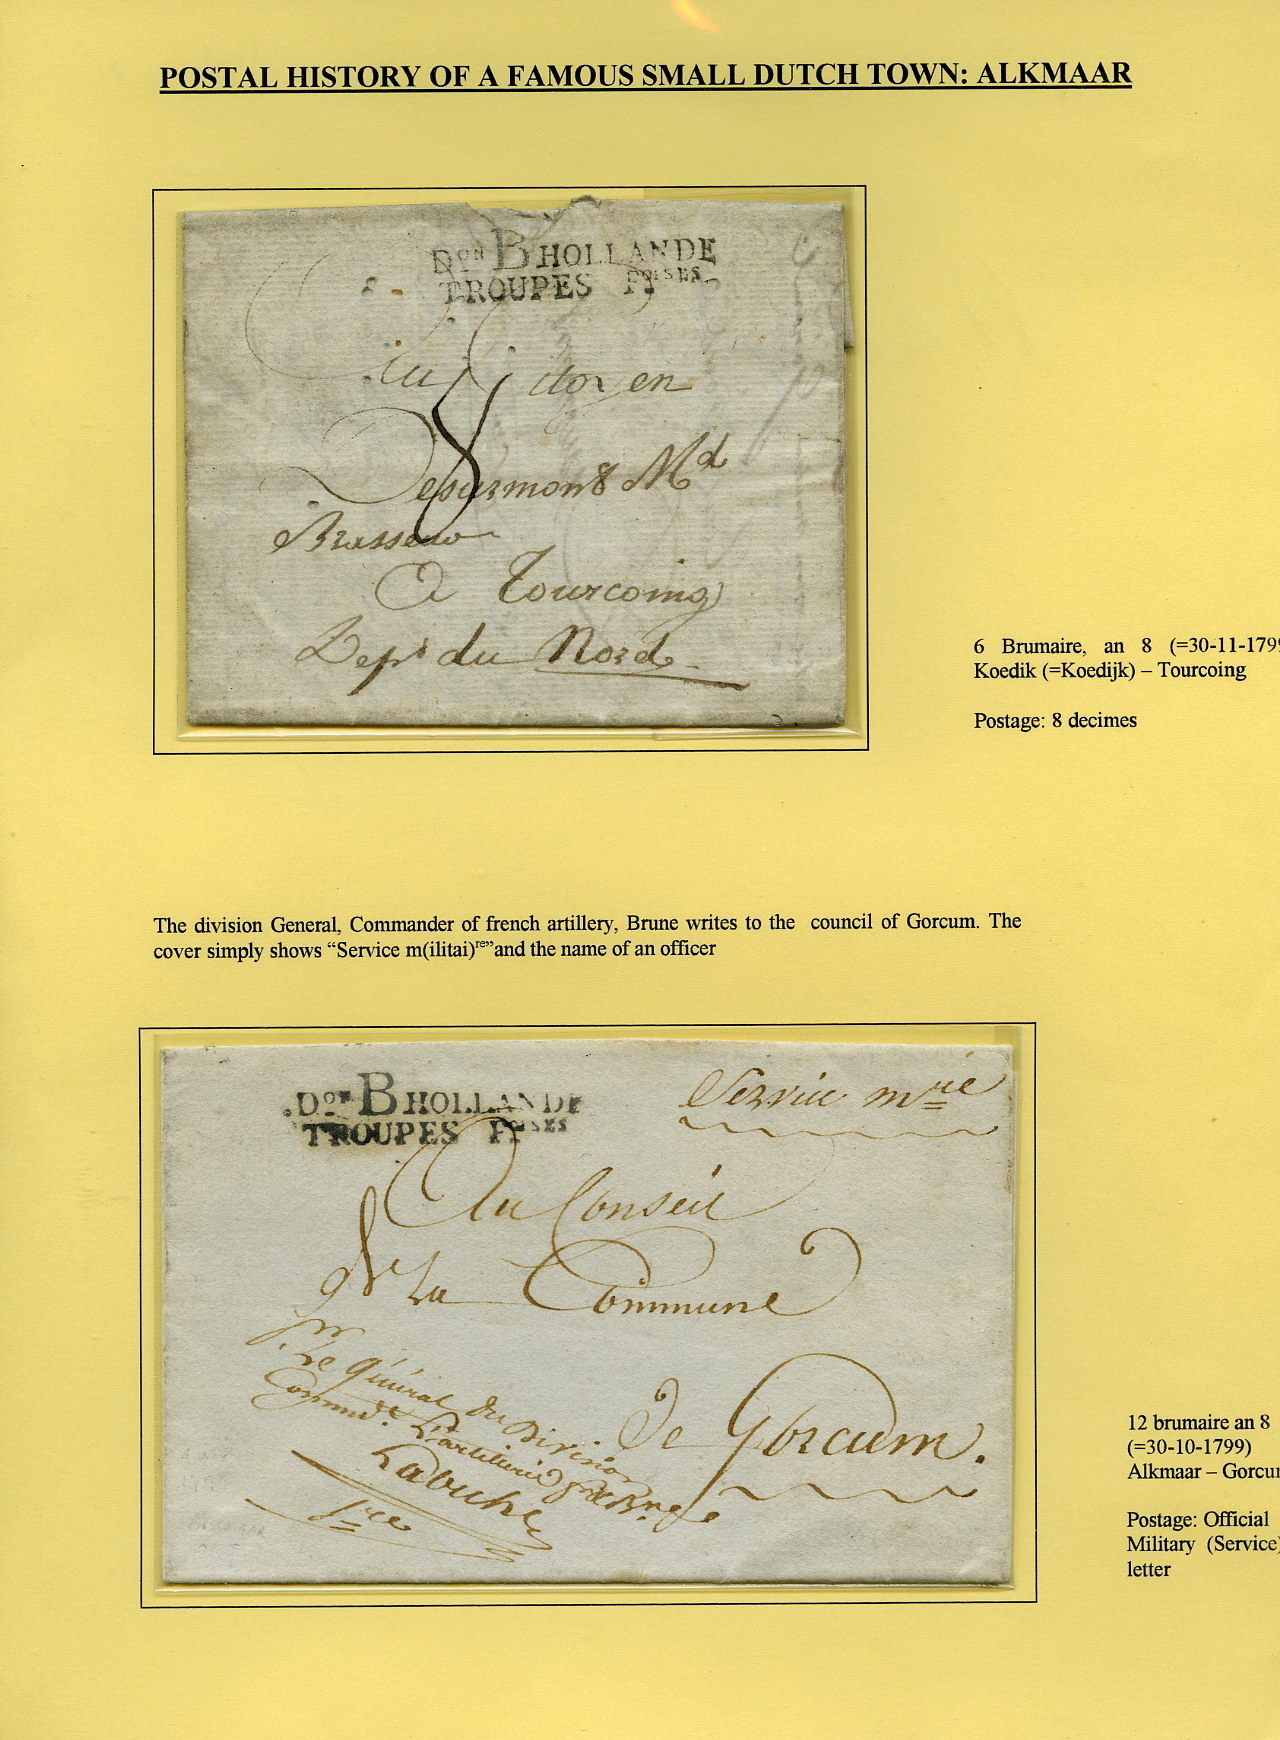 POSTAL HISTORY OF A FAMOUS SMALL DUTCH TOWN: ALKMAAR
Don B HOLLANDE
TROUPES Foises
Au Citoyen
Desurmont Md
Brasseur
8
A Tourcoing
Dept du Nord
6 Brumaire, an 8 (=30-11-179
Koedik (=Koedijk) – Tourcoing
Postage: 8 decimes
The division General, Commander of french artillery, Brune writes to the council of Gorcum. The
cover simply shows “Service m(ilitai)re”and the name of an officer
Don B HOLLANDE
TROUPES Foises
Service mre
Au Conseil
de La Commune
de Gorcum.
pr Le Général de Division
Commdt L'artillerie
12 brumaire an 8
(=30-10-1799)
Alkmaar – Gorcu
Postage: Official
Military (Service)
letter